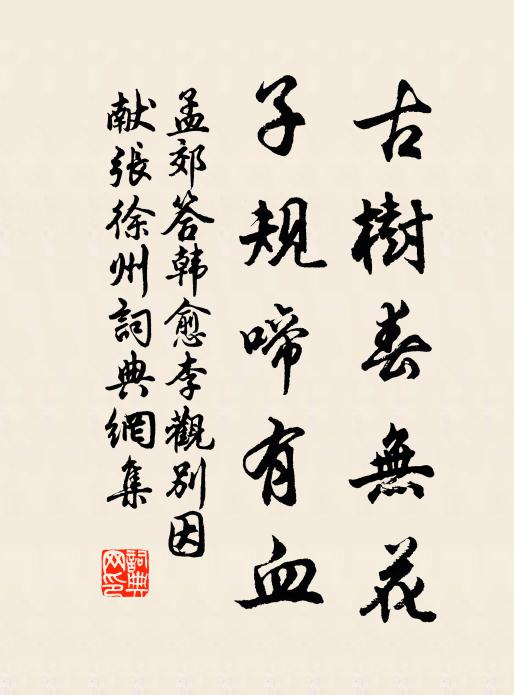 古樹春無花
子規啼有血
孟郊答韓愈李觀別因
献張徐州詞典網集
詞典网印